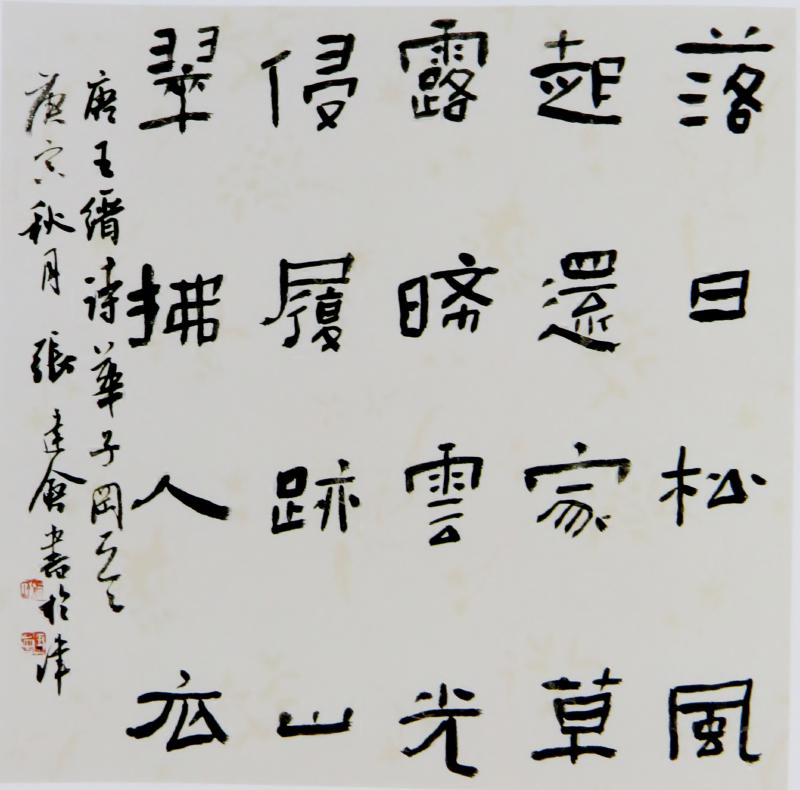 落日松風
起還家草
露晞雲光
侵履跡山
翠拂人衣
唐王縉诗華子岡
庚寅秋月 張建會書於津